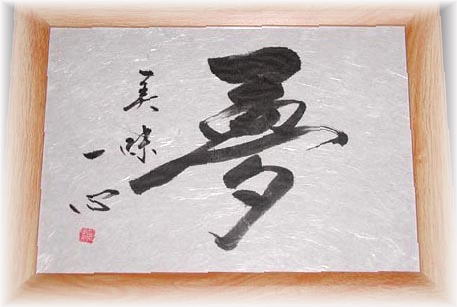 夢
美味一心